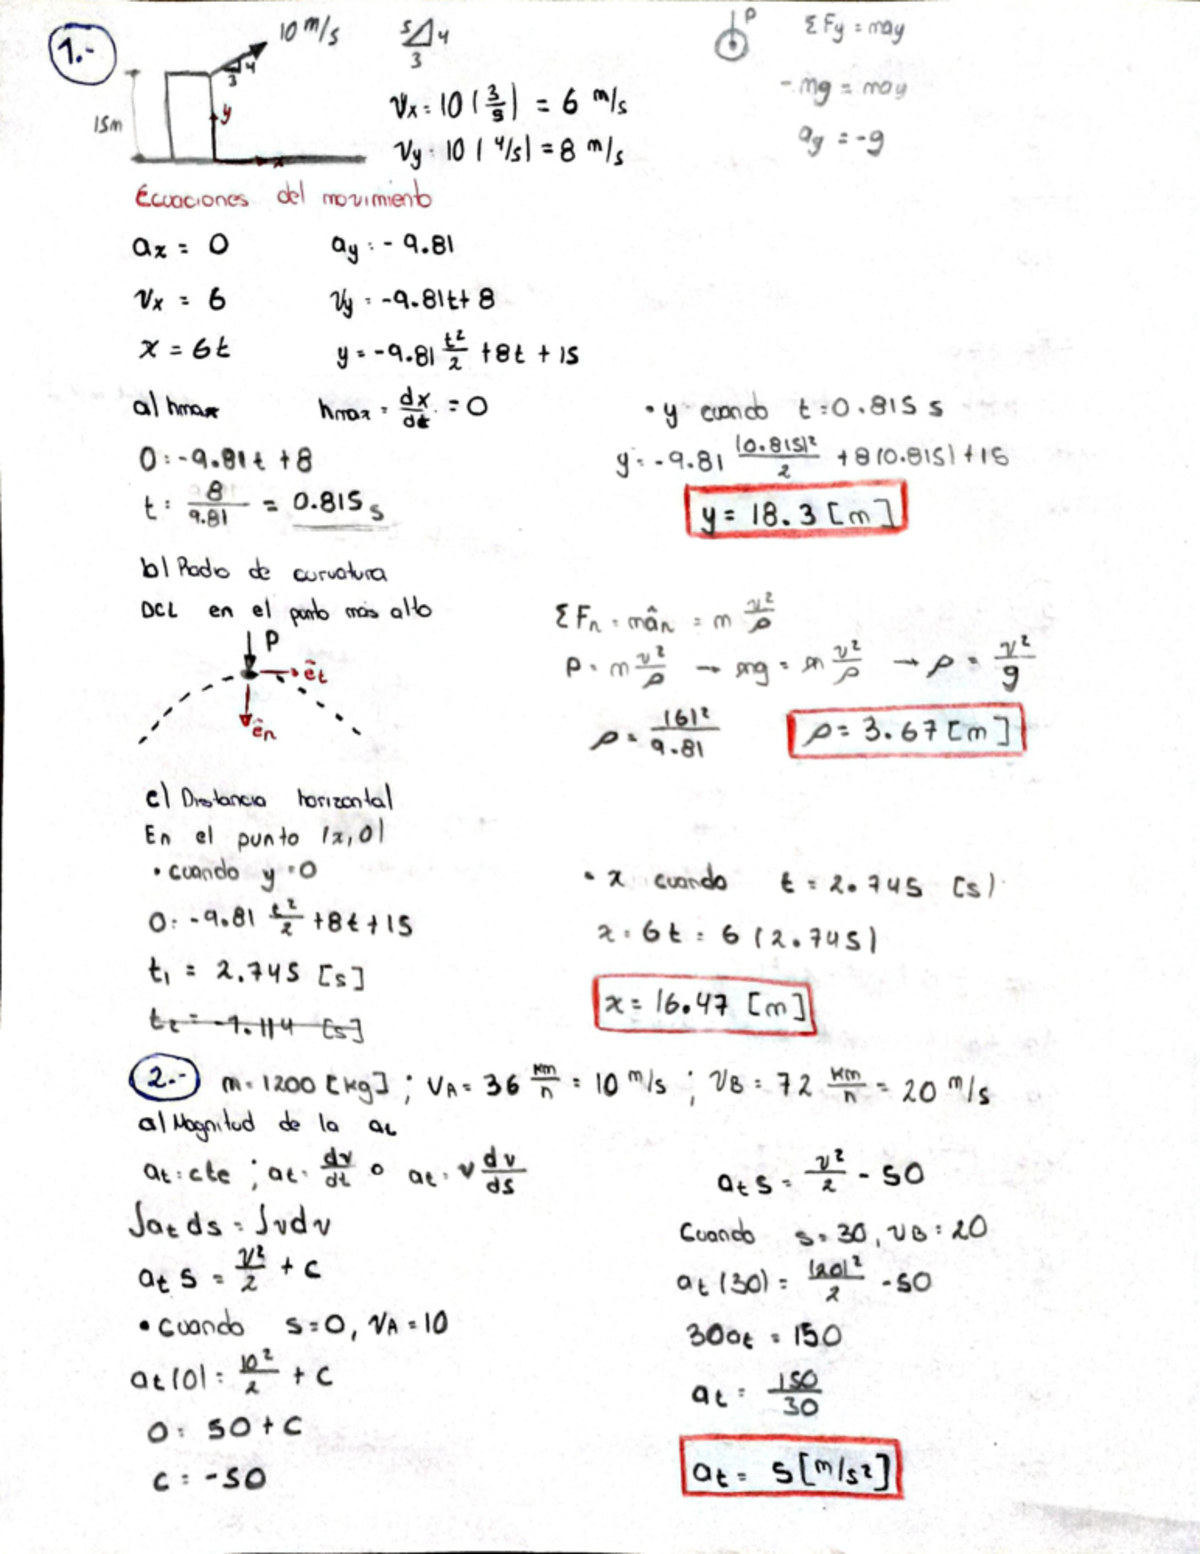 1.-
10 m/s
5 4
3
4
3
15m
y
x
Vx = 10 (3/5) = 6 m/s
Vy = 10 (4/5) = 8 m/s
P
ΣFy = may
-mg = may
ay = -g
Ecuaciones del movimiento
ax = 0 ay = -9.81
Vx = 6 Vy = -9.81t + 8
x = 6t y = -9.81 t²/2 + 8t + 15
a) hmax hmax = dx/dt = 0
0 = -9.81t + 8
t = 8/9.81 = 0.815 s
• y cuando t = 0.815 s
y = -9.81 (0.815)²/2 + 8(0.815) + 15
y = 18.3 [m]
b) Radio de curvatura
DCL en el punto más alto
P
êt
ên
ΣFn = mân = m v²/ρ
P = m v²/ρ → mg = m v²/ρ → ρ = v²/g
ρ = (6)²/9.81
ρ = 3.67 [m]
c) Distancia horizontal
En el punto (x,0)
• cuando y = 0
0 = -9.81 t²/2 + 8t + 15
t₁ = 2.745 [s]
t₂ = -1.114 [s]
• x cuando t = 2.745 [s]
x = 6t = 6 (2.745)
x = 16.47 [m]
2.- m = 1200 [kg] ; VA = 36 km/h = 10 m/s ; VB = 72 km/h = 20 m/s
a) Magnitud de la at
at = cte ; at = dv/dt o at = v dv/ds
∫at ds = ∫vdv
at s = v²/2 + c
• cuando s = 0, VA = 10
at(0) = 10²/2 + c
0 = 50 + c
c = -50
at s = v²/2 - 50
Cuando s = 30, VB = 20
at (30) = (20)²/2 - 50
30at = 150
at = 150/30
at = 5 [m/s²]